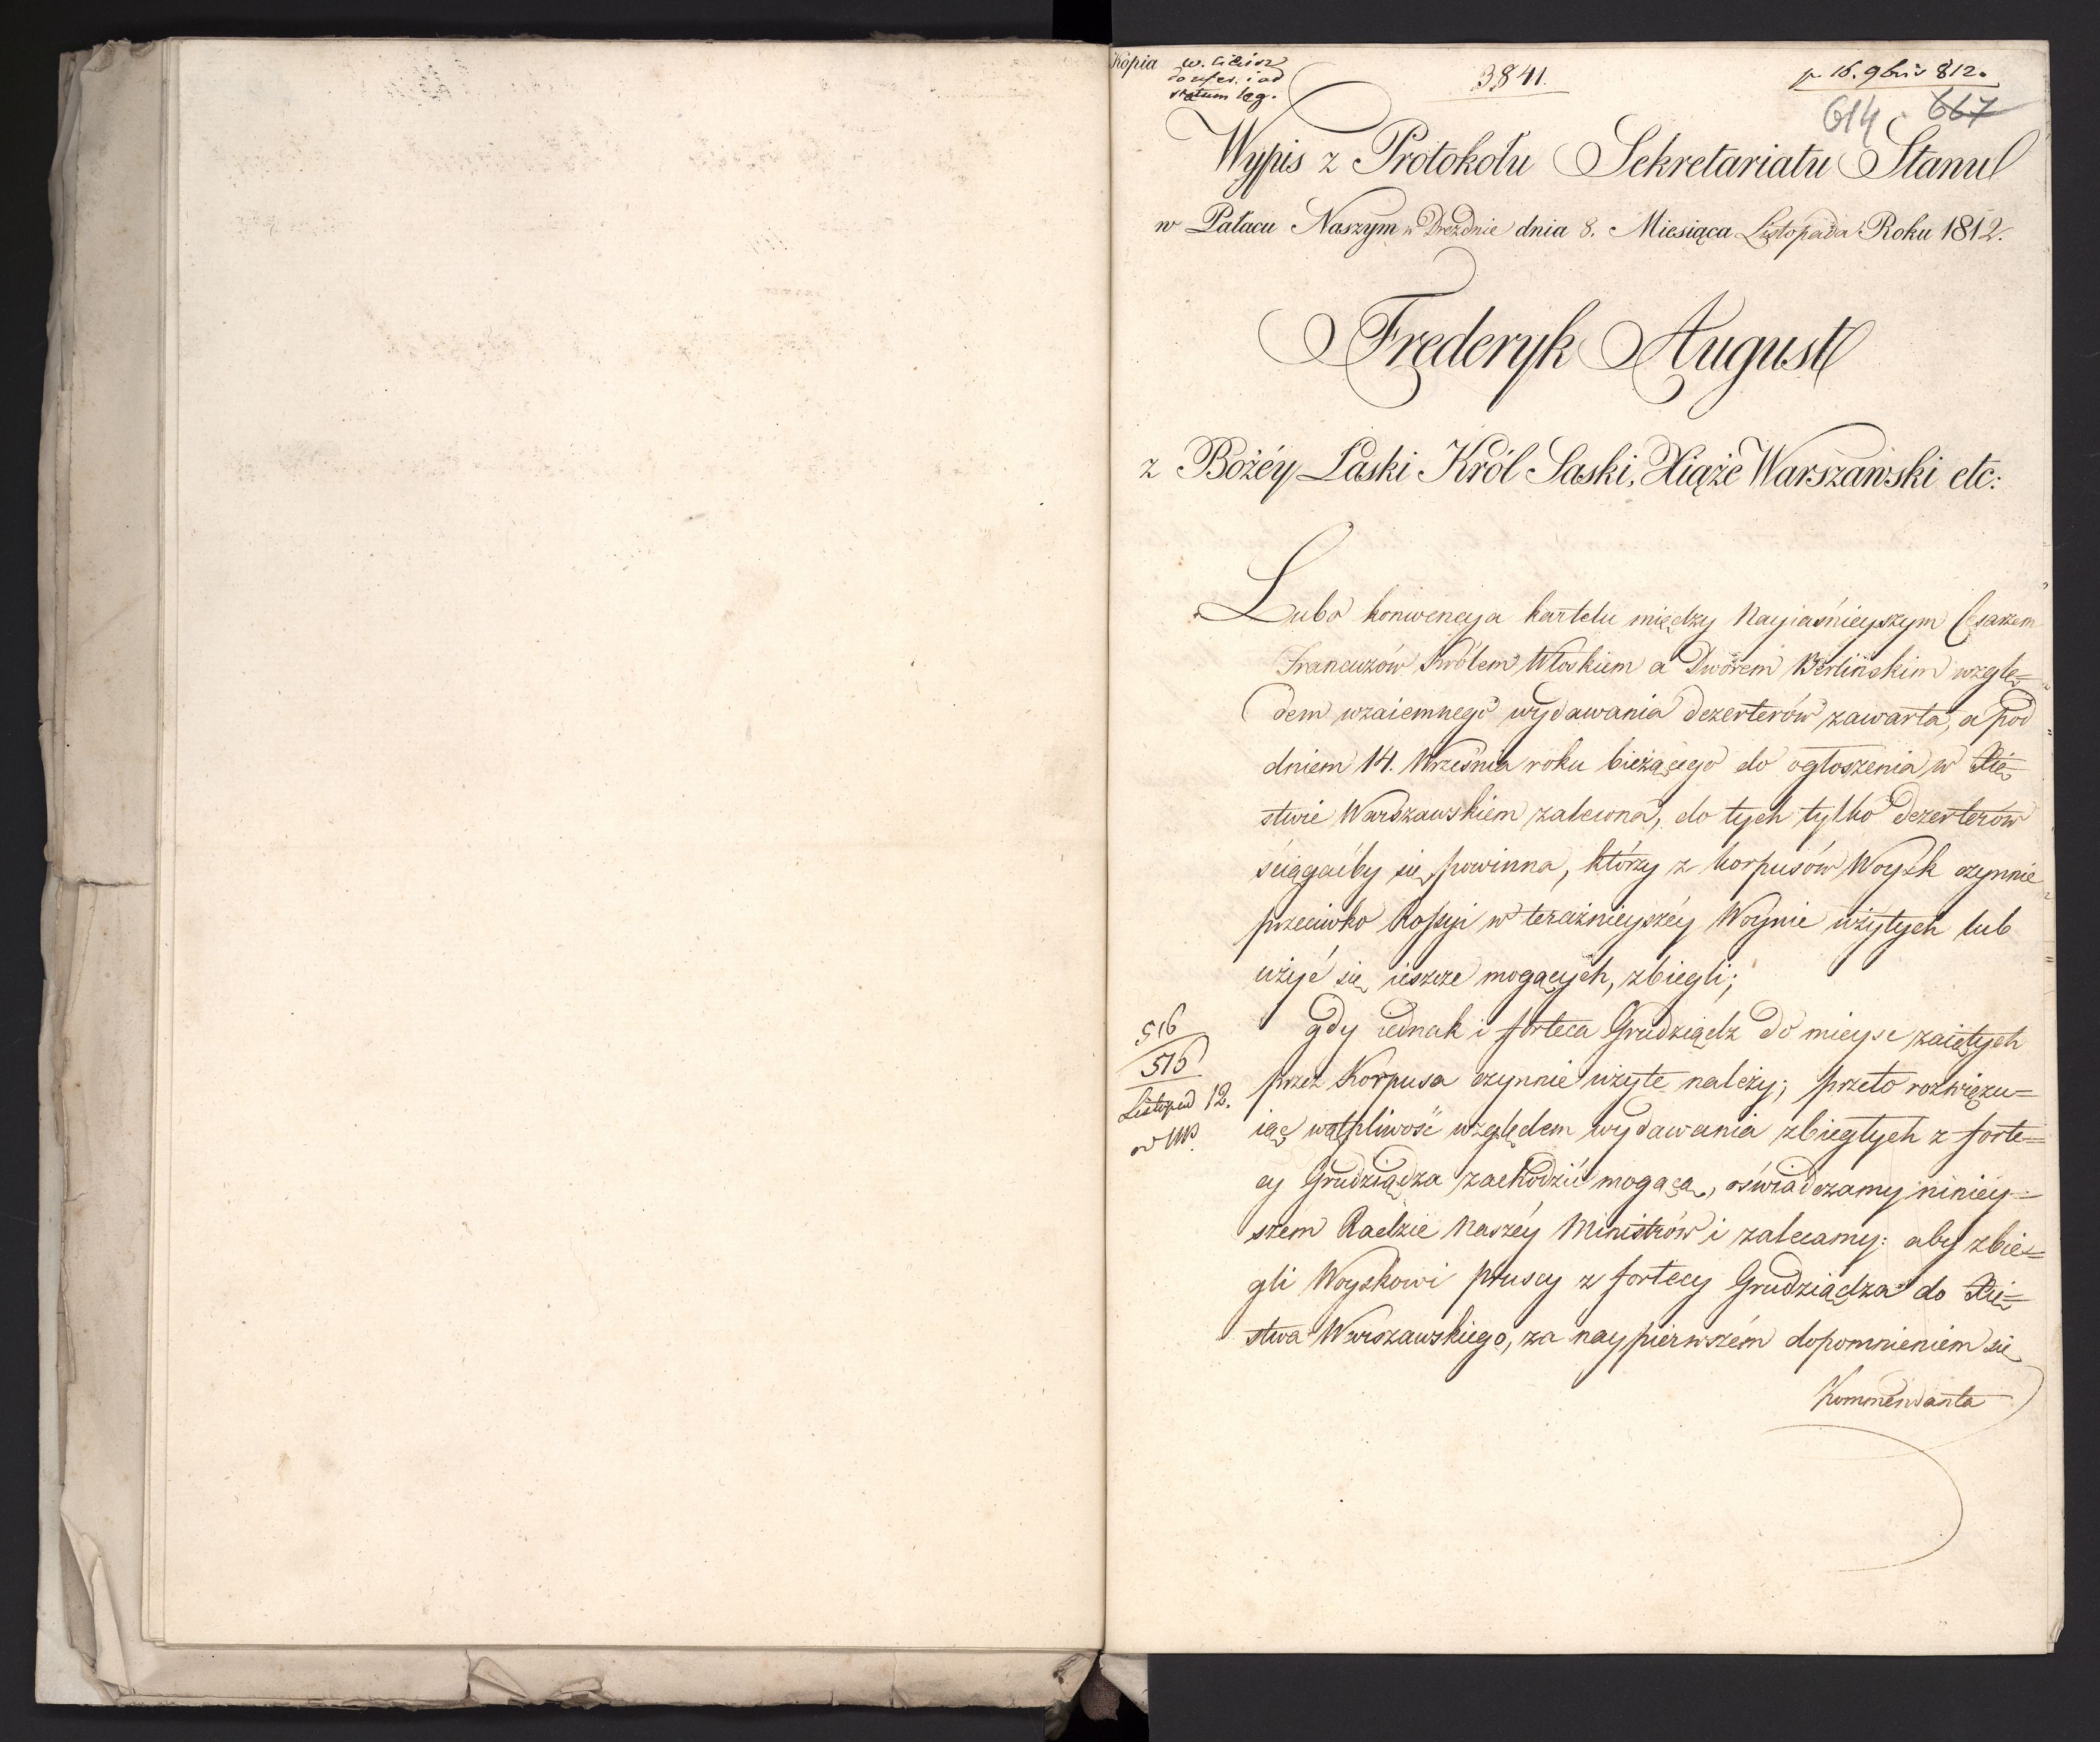 Kopia
3841.
p. 16. 9bris 812.
statum leg.
614 667
Wypis z Protokołu Sekretariatu Stanu
w Pałacu Naszym w Dreźdnie dnia 8. Miesiąca Listopada Roku 1812.
Frederyk August
z Bożéy Łaski Król Saski, Xiąże Warszawski etc:
Lubo konwencyja kartelu między Nayiaśnieyszym Cesarzem
Francuzów Królem Włoskiem a Dworem Berlińskim wzglę=
dem wzaiemnego wydawania dezerterów zawarta, a pod
dniem 14. Września roku bieżącego do ogłoszenia w Xię=
stwie Warszawskiem zalecona, do tych tylko dezerterów
ściągaćby się powinna, którzy z korpusów Woysk czynnie
przeciwko Rossyi w teraźnieyszéy Woynie użytych lub
użyć się ieszcze mogących, zbiegli;
gdy iednak i forteca Grudziądz do mieysc zaiętych
przez Korpusa czynnie użyte należy; przeto rozwięzu=
iąc wątpliwość względem wydawania zbiegłych z forte=
cy Grudziądza zachodzić mogącą, oświadczamy ninieys=
szem Radzie Naszéy Ministrów i zalecamy: aby zbie=
gli Woyskowi pruscy z fortecy Grudziądza do Xię=
stwa Warszawskiego, za naypierwszém dopomnieniem się
Kommendanta
516
516
Listopad 12.